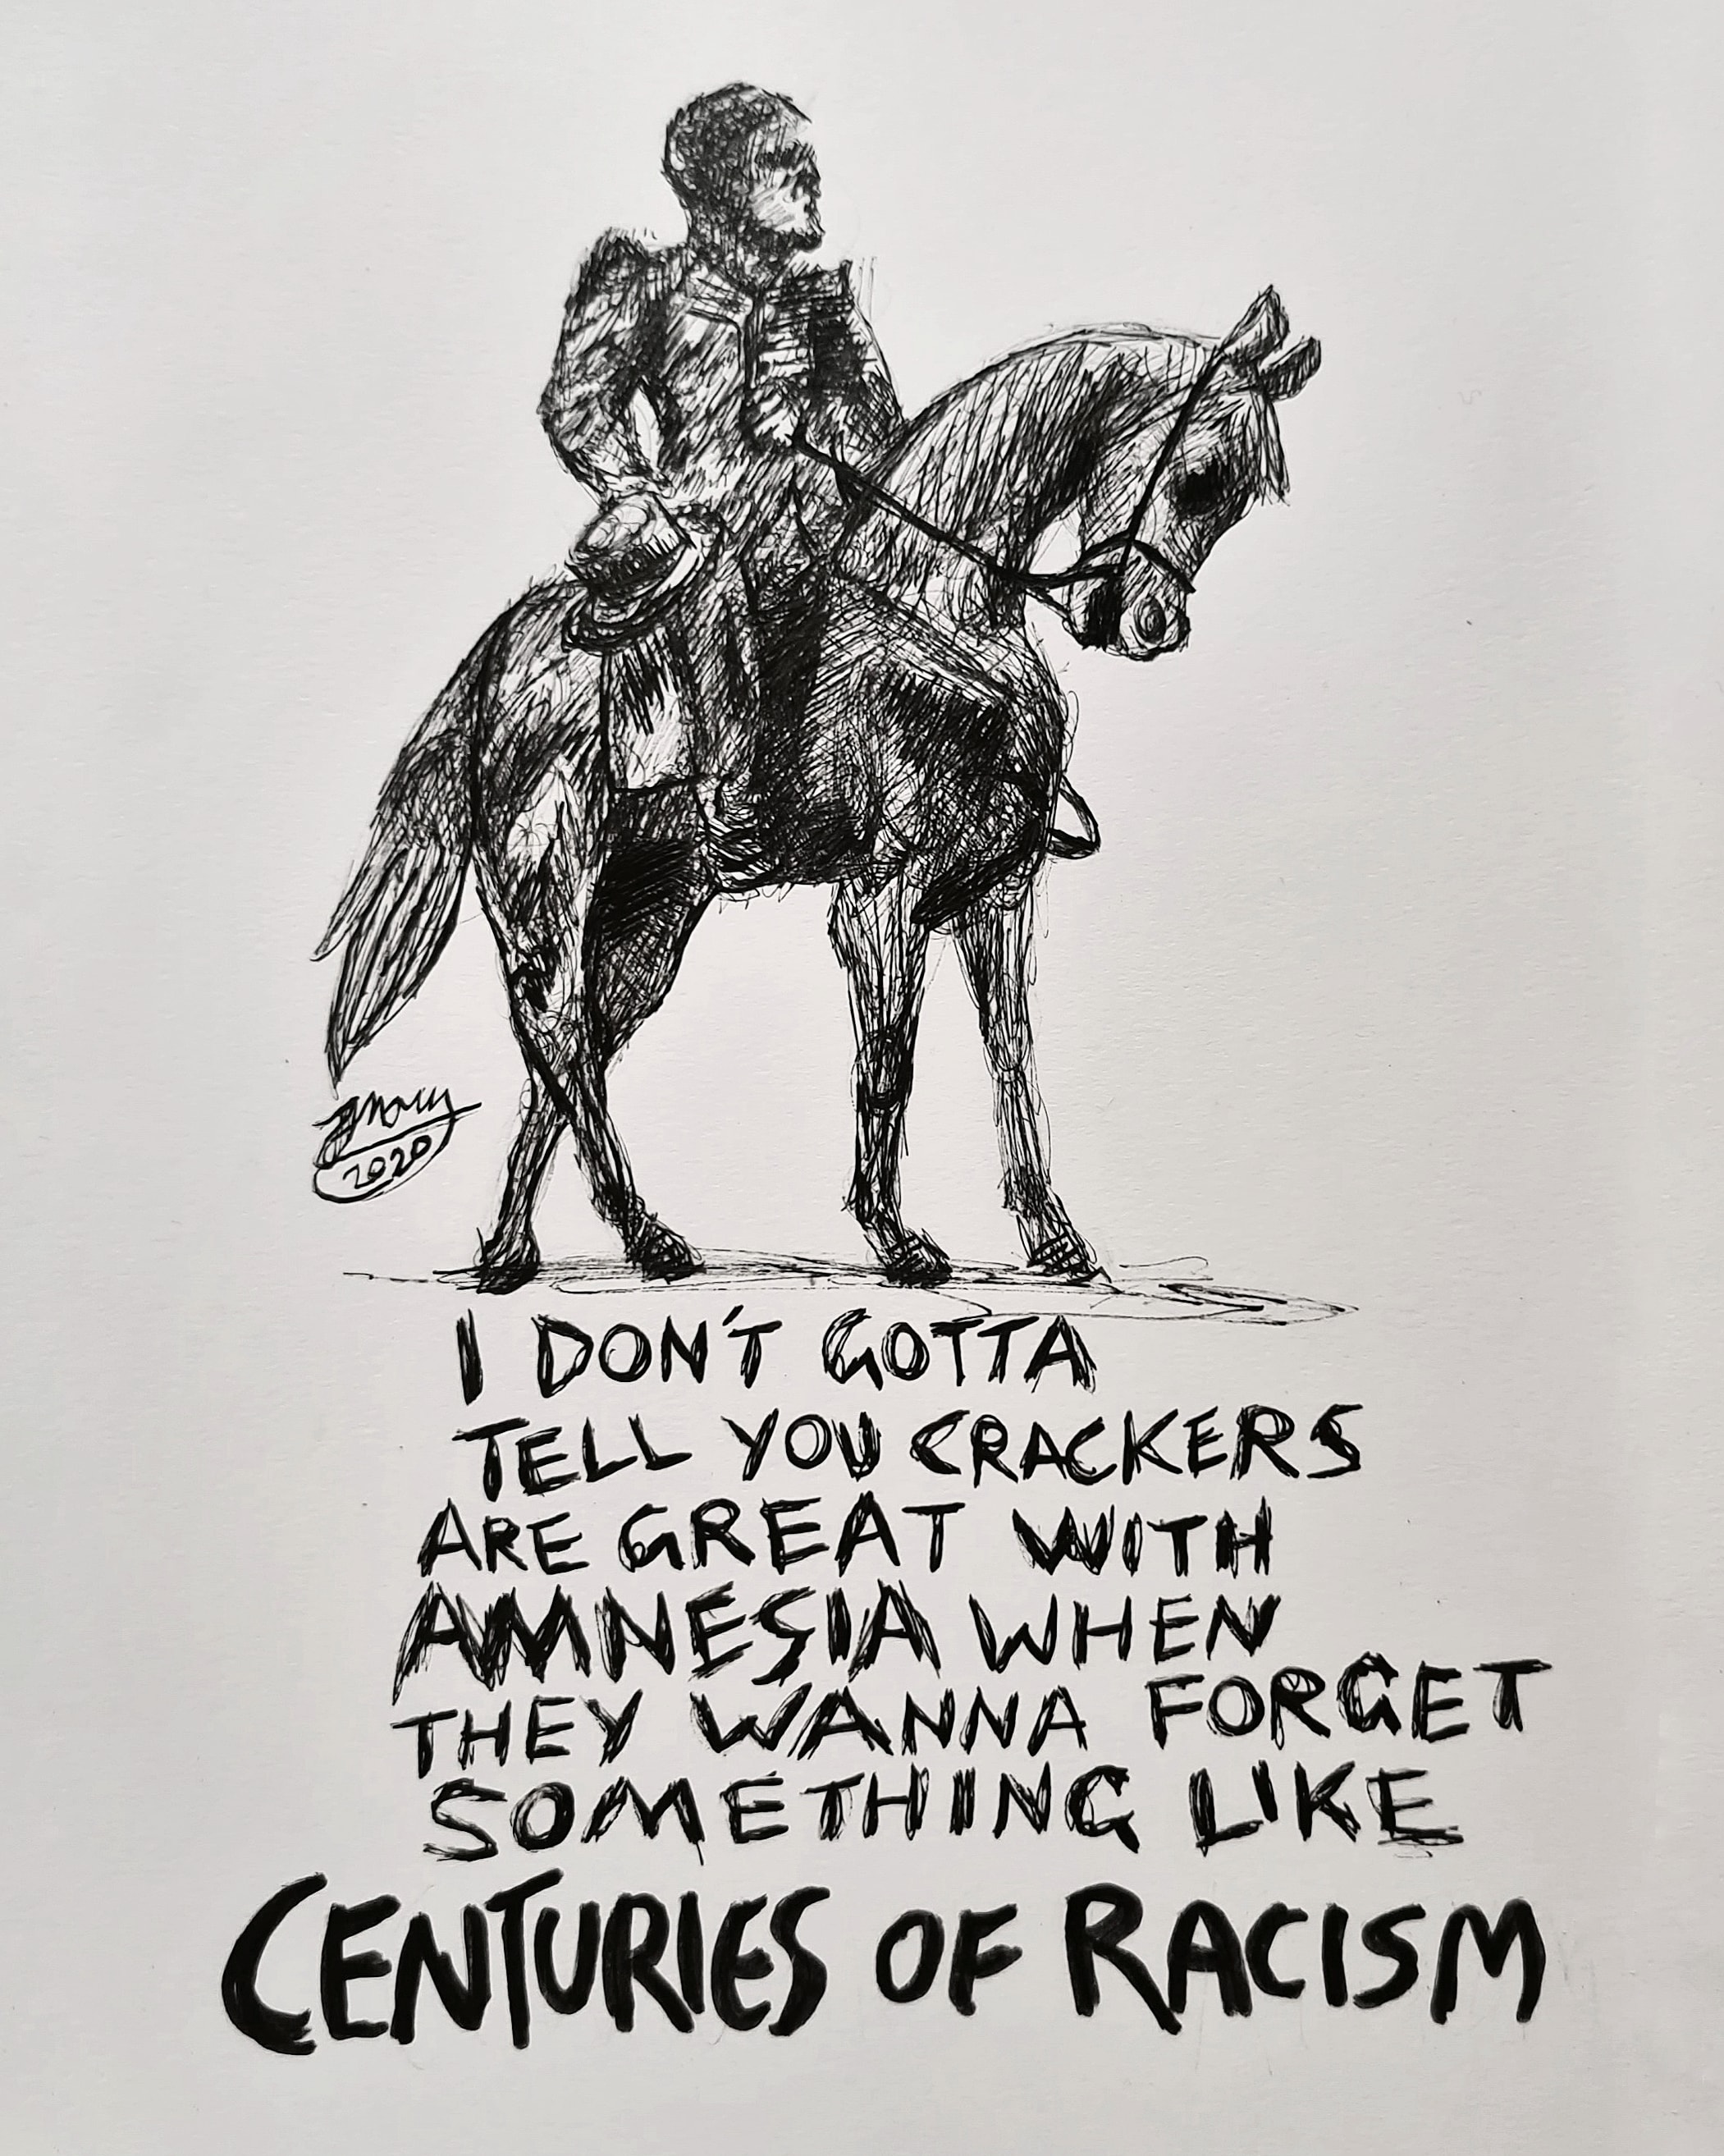 2020
I DON'T GOTTA
TELL YOU CRACKERS
ARE GREAT WITH
AMNESIA WHEN
THEY WANNA FORGET
SOMETHING LIKE
CENTURIES OF RACISM